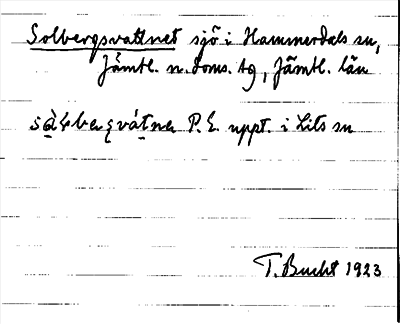 Solbergsvattnet sjö i Hammerdals sn,
Jämtl. n. doms. tg, Jämtl. län
P. E. uppt. i Lits sn
T. Bucht 1923